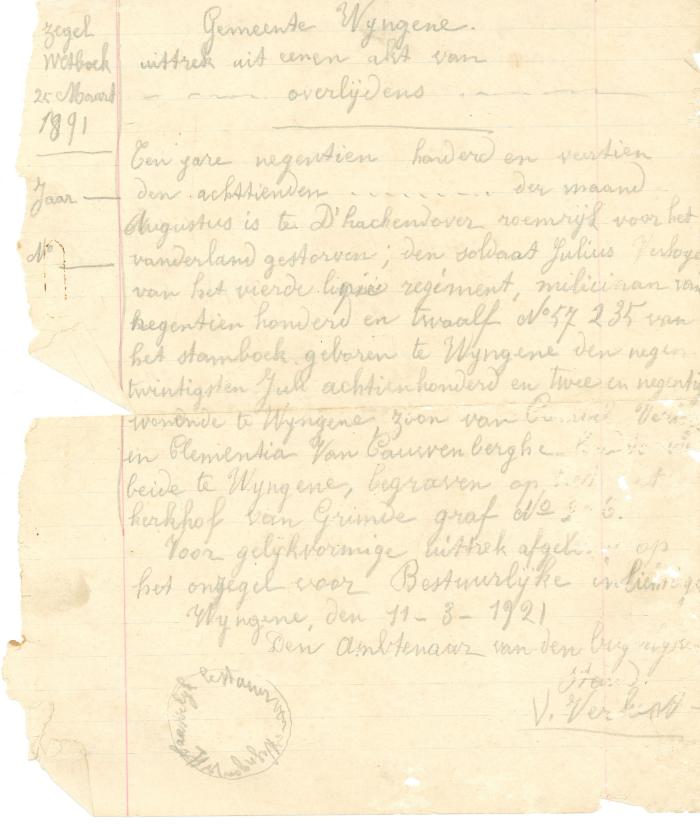 Gemeente Wyngene.
zegel
Wetboek
25 Maart
1891
Jaar
No
uittrek uit eenen akt van
overlijdens
Ten jare negentien honderd en veertien
den achttienden . . . . . . . . der maand
Augustus is te D'hackendover roemrijk voor het
vanderland gestorven; den soldaat Julius
van het vierde linie regiment, miliciaan van
negentien honderd en twaalf No 57 235 van
het stamboek geboren te Wyngene den negen
twintigsten Juli achtienhonderd en twee en negentig
wonende te Wyngene zoon van
en Clementia Van Cauwenberghe
beide te Wyngene, begraven op
kerkhof van Grimde graf No
Voor gelijkvormige uittrek op
het ongezegel voor Bestuurlijke
Wyngene, den 11-3-1921
Den Ambtenaar van den
Stand.
V.
bestuur van Wyngene